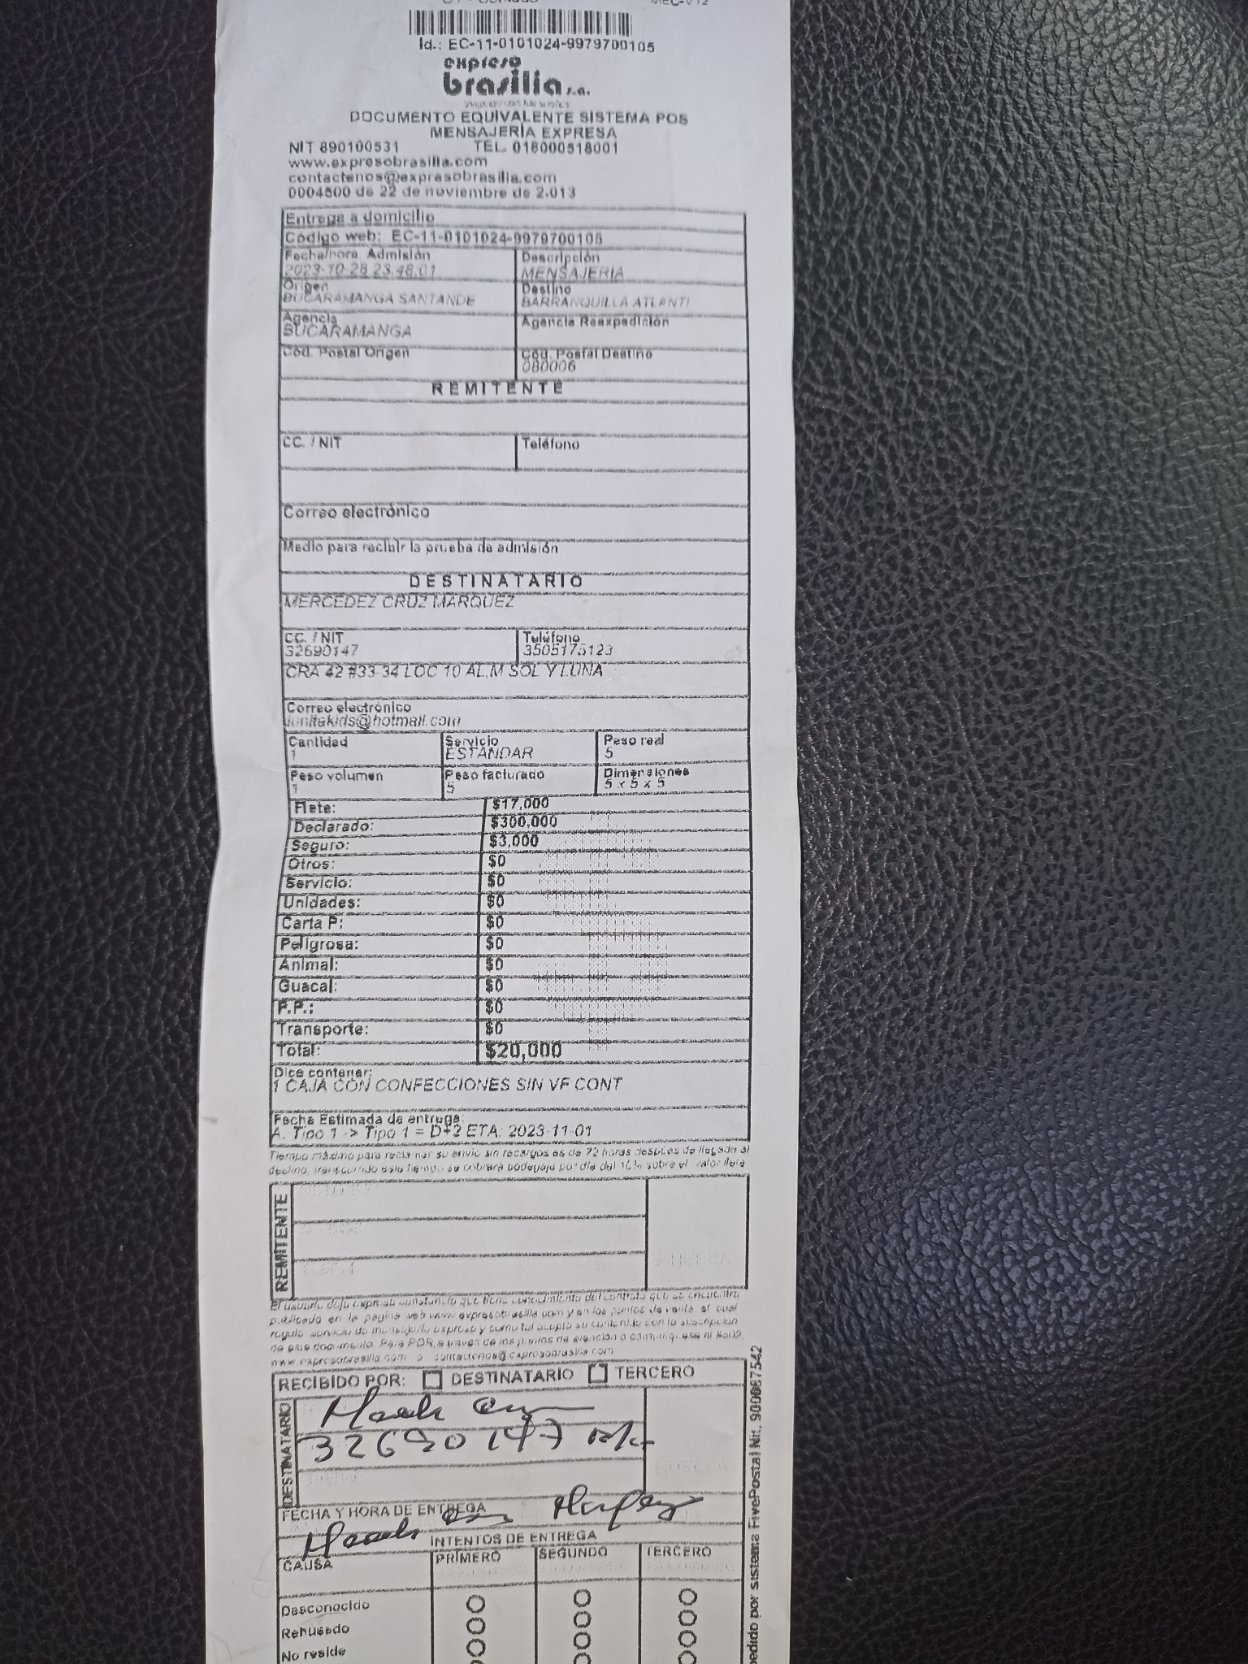 Id.: EC-11-0101024-9979700105
expreso
brasilia s.a.
DOCUMENTO EQUIVALENTE SISTEMA POS
MENSAJERÍA EXPRESA
NIT 890100531 TEL. 018000518001
www.expresobrasilia.com
contactenos@expresobrasilia.com
0004500 de 22 de noviembre de 2.013
Entrega a domicilio
Código web: EC-11-0101024-9979700105
Fecha/hora Admisión Descripción
2023-10-28 23:48:01 MENSAJERIA
Origen Destino
BUCARAMANGA SANTANDE BARRANQUILLA ATLANTI
Agencia Agencia Reexpedición
BUCARAMANGA
Cód. Postal Origen Cód. Postal Destino
080006
REMITENTE
CC. / NIT Teléfono
Correo electrónico
Medio para recibir la prueba de admisión
DESTINATARIO
MERCEDEZ CRUZ MARQUEZ
CC. / NIT Teléfono
32690147 3505175123
CRA 42 #33-34 LOC 10 AL,M SOL Y LUNA
Correo electrónico
@hotmail.com
Cantidad Servicio Peso real
1 ESTANDAR 5
Peso volumen Peso facturado Dimensiones
1 5 5 x 5 x 5
Flete: $17,000
Declarado: $300,000
Seguro: $3,000
Otros: $0
Servicio: $0
Unidades: $0
Carta P: $0
Peligrosa: $0
Animal: $0
Guacal: $0
P.P.: $0
Transporte: $0
Total: $20,000
Dice contener:
1 CAJA CON CONFECCIONES SIN VF CONT
Fecha Estimada de entrega:
A. Tipo 1 -> Tipo 1 = D+2 ETA. 2023-11-01
Tiempo máximo para reclamar su envio sin recargos es de 72 horas después de llegado al
destino, transcurrido este tiempo se cobrará bodegaje por día del 1% sobre el valor flete
REMITENTE
El usuario deja expresa constancia que tiene conocimiento del contrato que se encuentra
publicado en la página web www.expresobrasilia.com y en los puntos de venta, el cual
regula servicio de mensajería expresa y como tal acepta su contenido con la suscripción
de este documento. Para PQR a través de los puntos de atención o comuníquese al
www.expresobrasilia.com o contactenos@expresobrasilia.com
RECIBIDO POR: DESTINATARIO TERCERO
DESTINATARIO
32690147
FECHA Y HORA DE ENTREGA
INTENTOS DE ENTREGA
CAUSA PRIMERO SEGUNDO TERCERO
Desconocido
Rehusado
No reside
sistema FivePostal Nit. 900087542